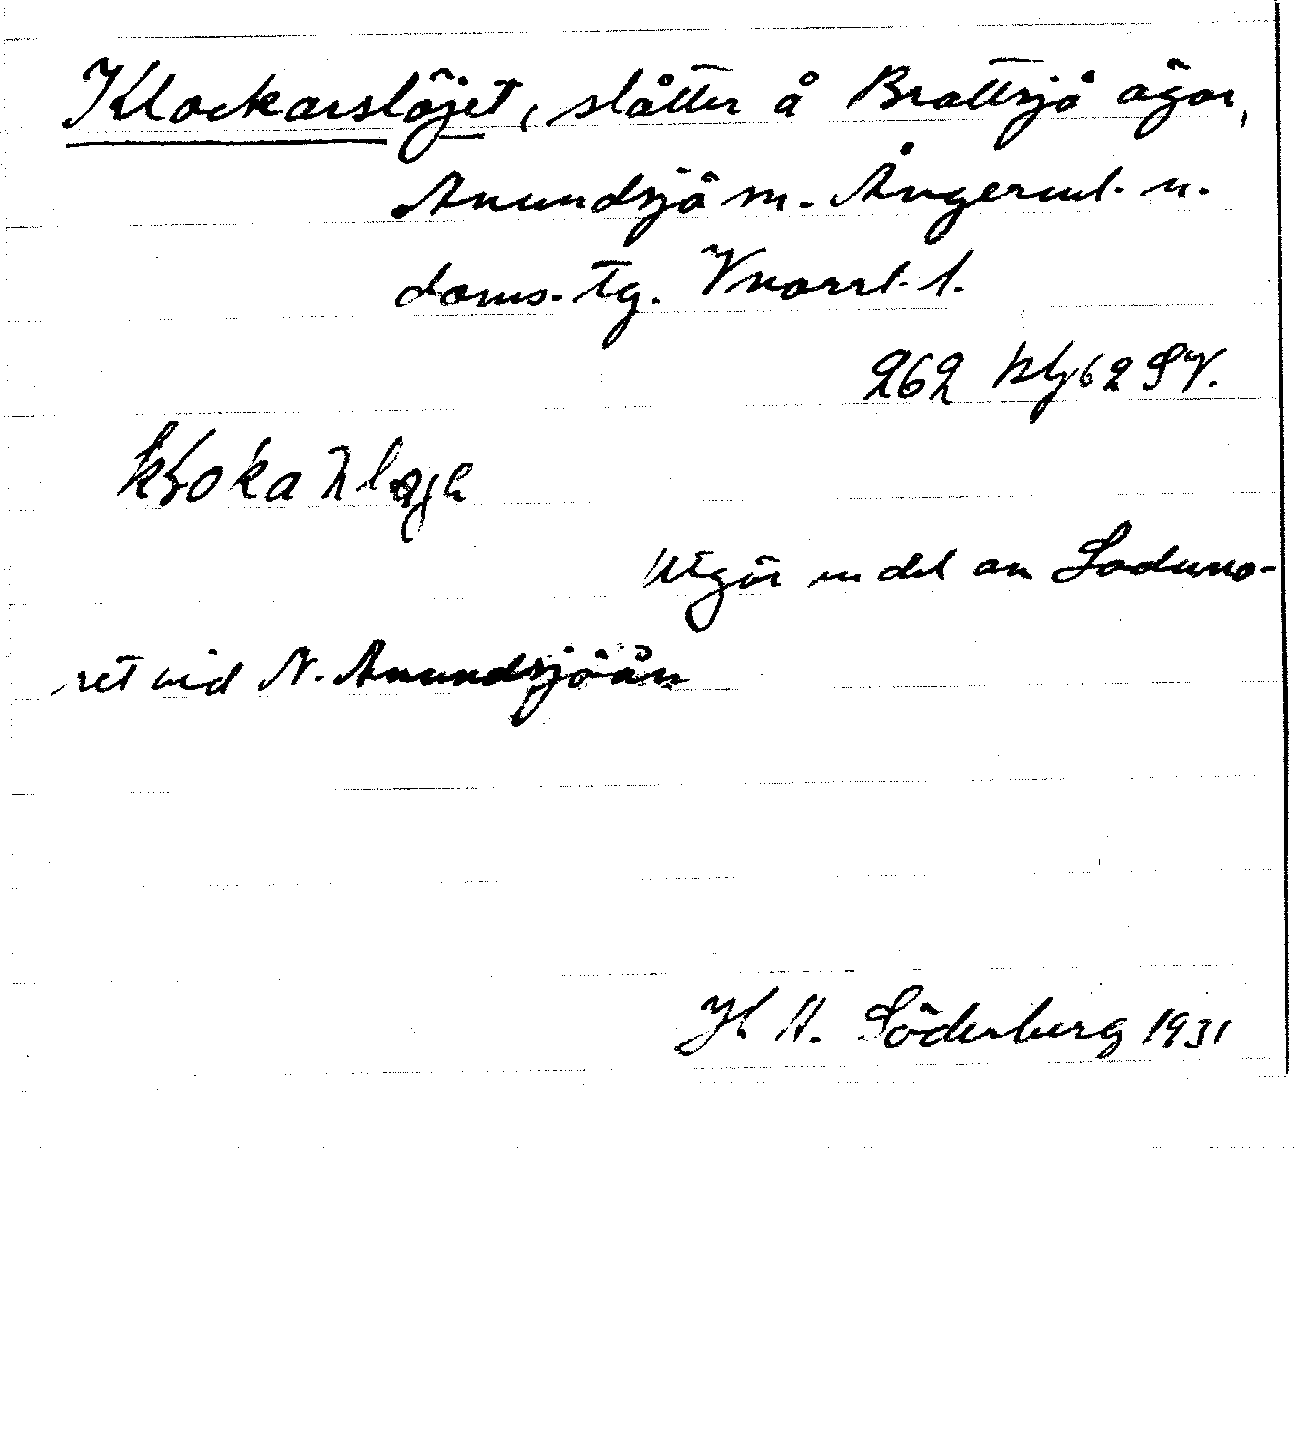 Klockarslöjet, slåtter å Brattsjö ägor,
Anundsjö sn. Ångerml. n.
doms. tg. Vnorrl. l.
262 blz 62 SV.
Utgör en del av Laduno-
ret vid N. Anundsjöån
H. A. Söderberg 1931